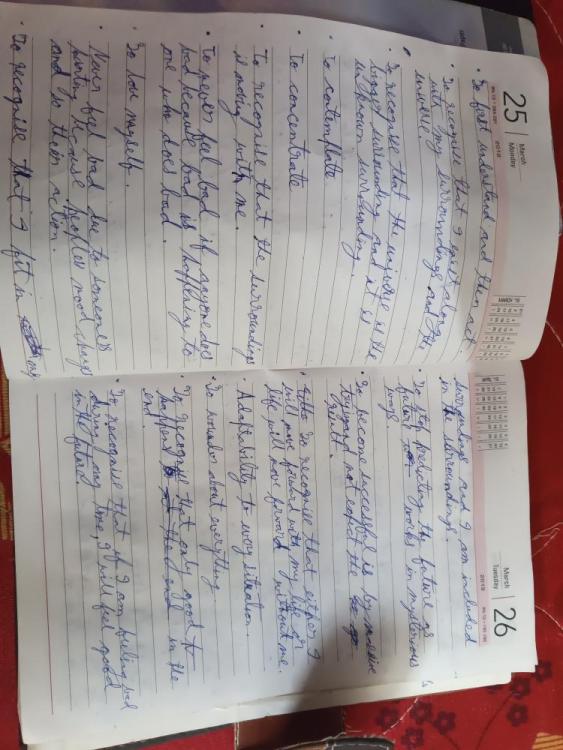 25
March
Monday
2019
• To first understand and then act.
• To recognise that I exist along
with my surroundings and the
universe.
• To recognise that the universe is the
bigger surrounding and it is
unknown surrounding.
• To contemplate
• To concentrate
• To recognise that the surroundings
is moving with me.
• To never feel bad if anyone does
bad because bad is happening to
one who does bad.
• To love myself.
• Never feel bad due to someone's
hurting because peoples mood
and so their action.
• To recognise that I fit in my
March
Tuesday
26
2019
surroundings and I am included
in the surroundings.
• To stop predicting the future as
future works in mysterious
ways.
• To become successful is by
toward not expect the
result.
• To recognise that either I
will move forward with my life or
life will move forward without me.
• Adaptability to every situation.
• To wonder about everything
• To recognise that only good
happens in the
end.
• To recognise that if I am feeling bad
during any time, I will feel good
in the future.